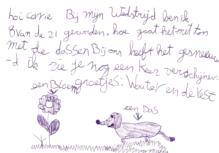 hoi carrie Bij mijn Wedstrijd ben ik
8 van de 21 geworden. hoe gaat het met
met de dassen Bij ons heeft het gesneeuw
-d Ik zie je nog een keer verschijnen
groetjes: Wouter en de rest
een Bloem
een Das